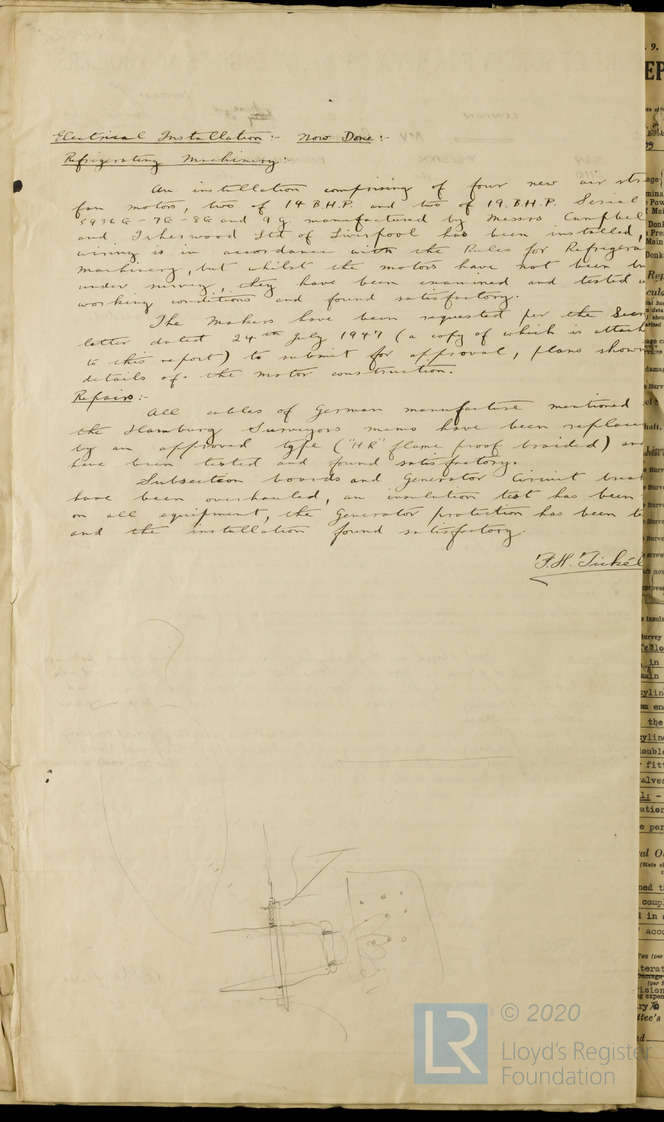 Electrical Installation:- Now Done:-
Refrigerating Machinery:-
An installation comprising of four new air
fan motors, two of 14 B.H.P. and two of 19. B.H.P. Serial
5936G - 7G - 8G and 9G manufactured by Messrs Campbel
and Isherwood Ltd of Liverpool has been installed,
wiring is in accordance with the Rules for Refrigera
machinery, but whilst the motors have not been
under survey, they have been examined and tested
working conditions and found satisfactory.
The Makers have been requested per the
letter dated 24th July 1947 (a copy of which is attach
to this report) to submit for approval, plans show
details of the motor construction.
Repairs:-
All cables of German manufacture mentioned
the Hamburg Surveyors memo have been replace
by an approved type ("HR" flame proof braided) an
have been tested and found satisfactory.
Subsection boards and Generator Circuit brea
have been overhauled, an insulation test has been
on all equipment, the Generator protection has been te
and the installation found satisfactory.
F.H. Tickel
LR
© 2020
Lloyd's Register
Foundation